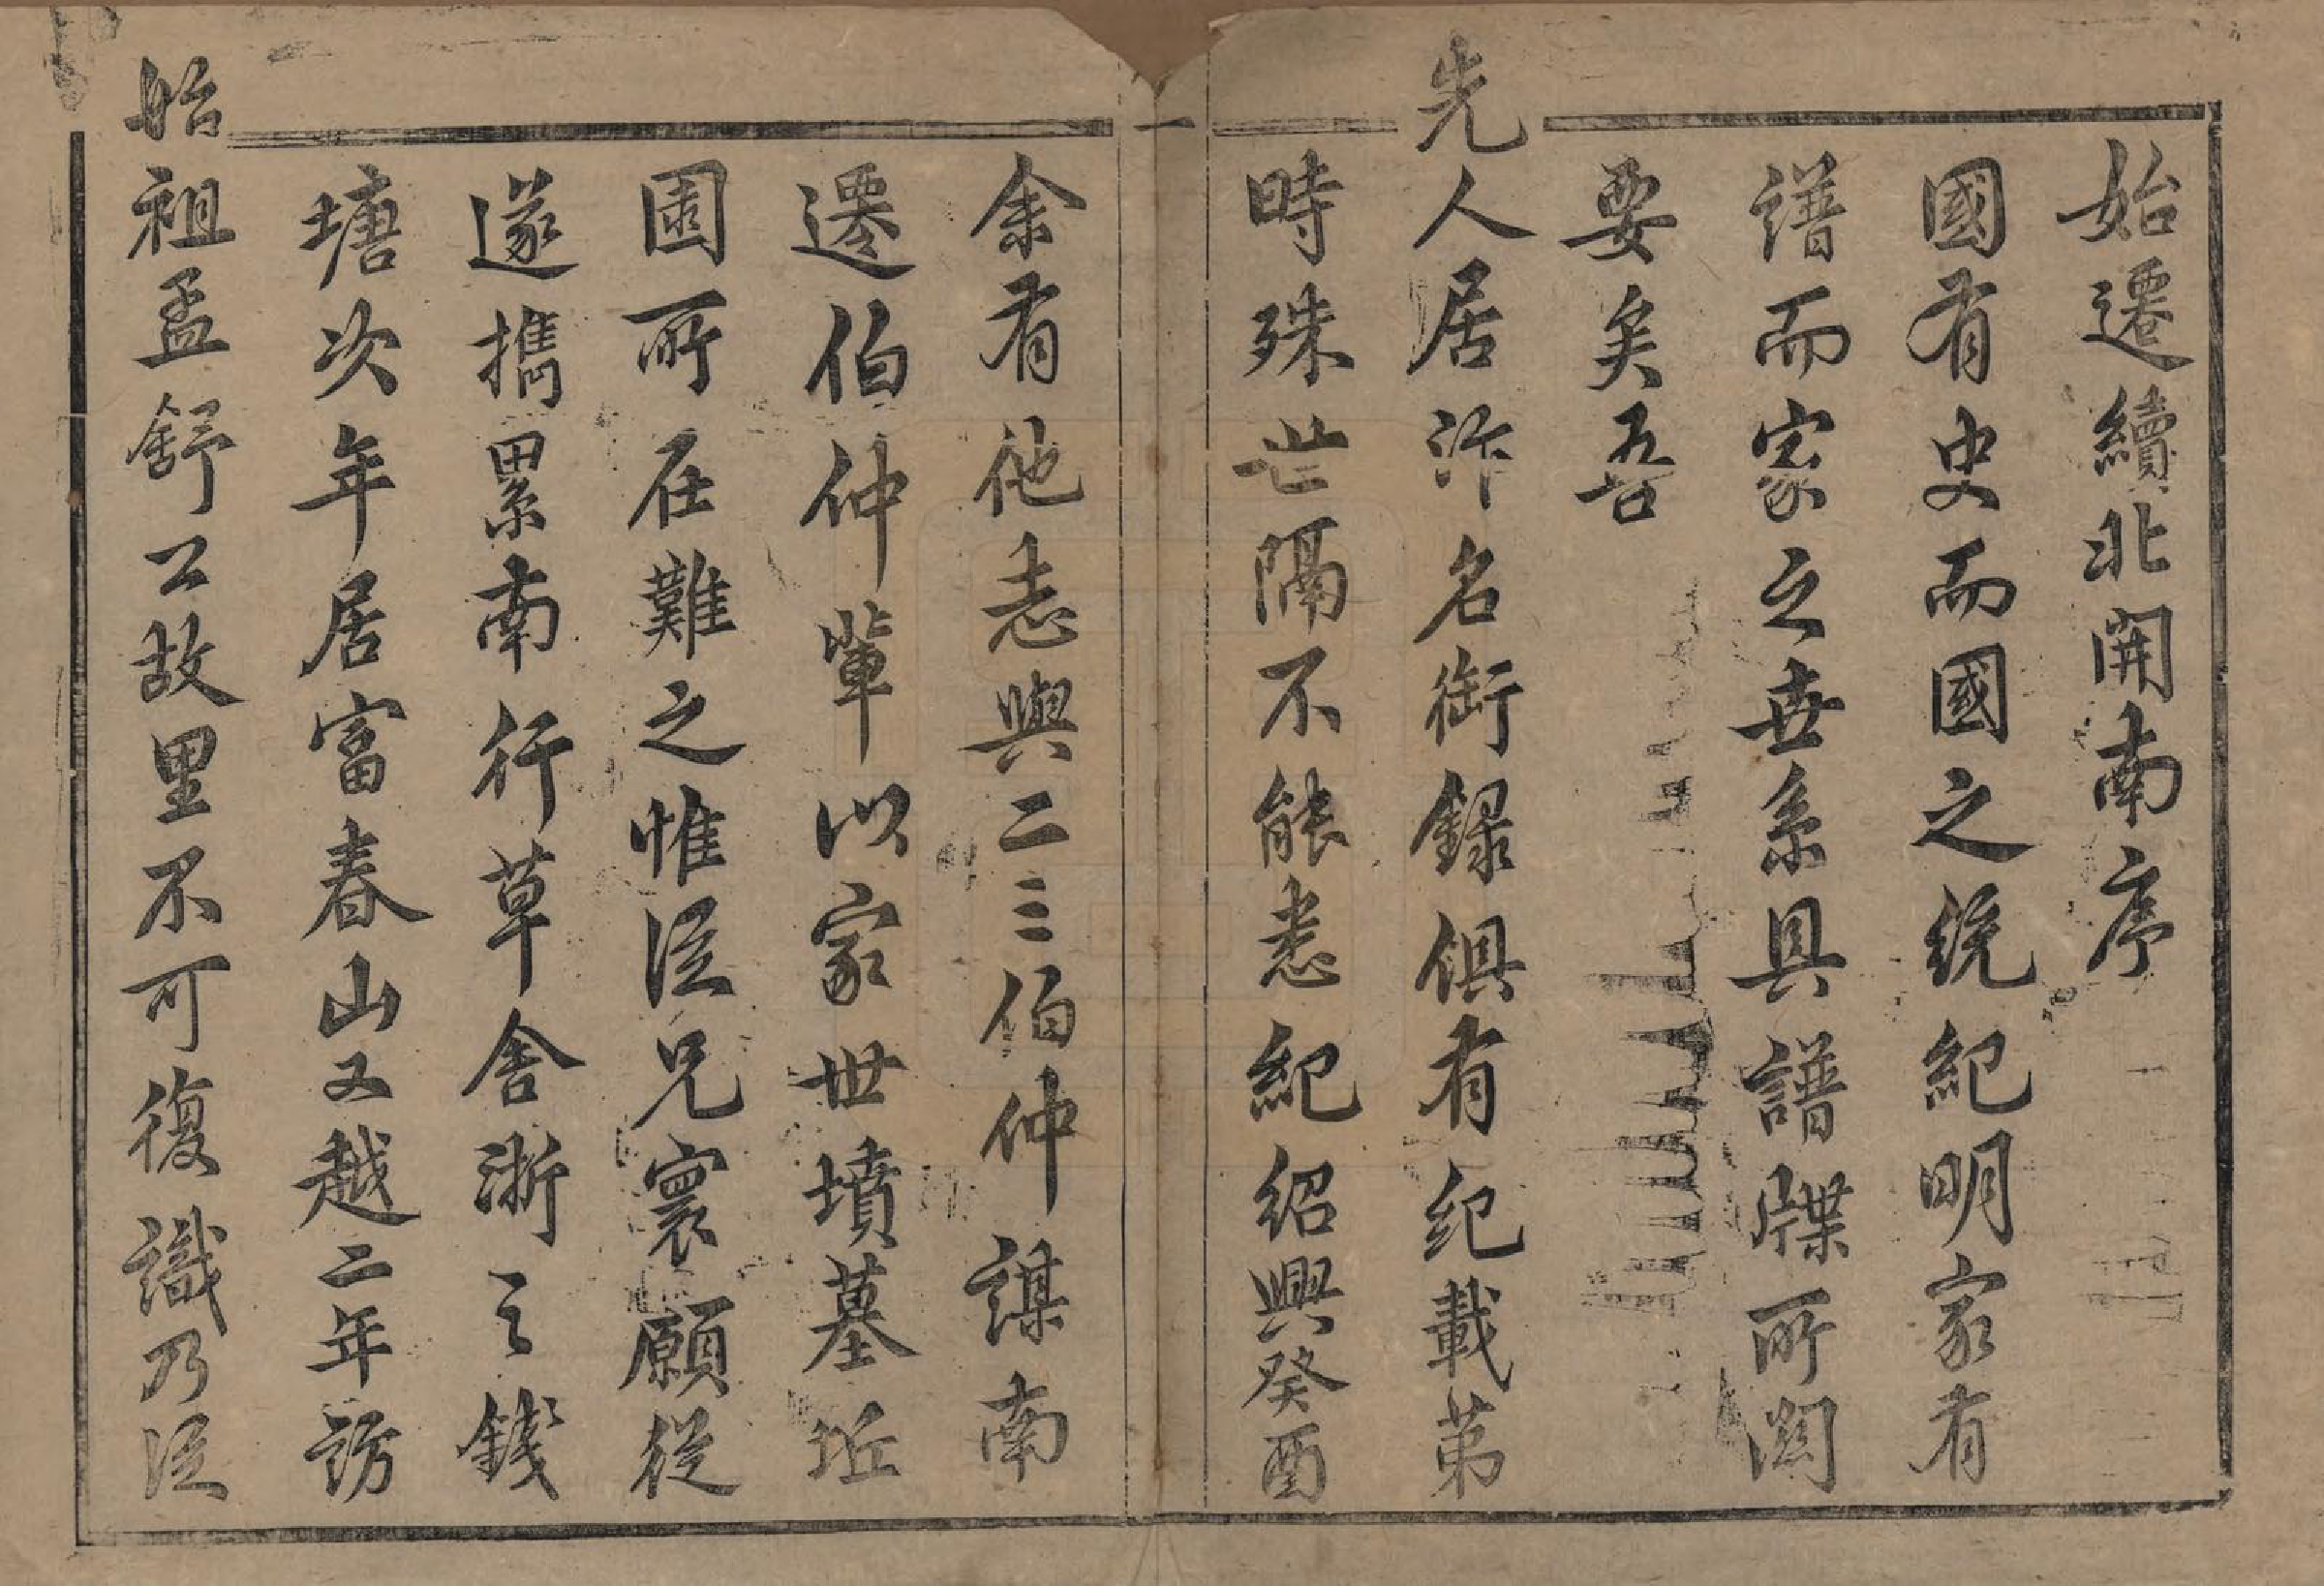 始遷續北開南序
國有史而國之統紀明家有
譜而家之世系具譜牒所関
要矣吾
先人居汴名銜録俱有紀載苐
時殊世隔不能悉紀紹興癸酉
一
余有他志與二三伯仲謀南
遷伯仲輩以家世墳墓坵
園所在難之惟從兄寰願從
遂携累南行草舍浙之錢
塘次年居富春山又越二年訪
始祖孟舒公故里不可復識乃從